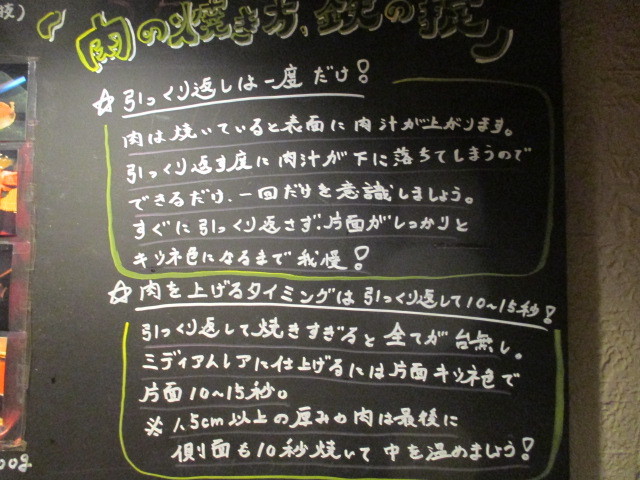 「肉の焼き方、鉄の掟」
☆引っくり返しは一度だけ!
肉は焼いていると表面に肉汁が上がります。
引っくり返す度に肉汁が下に落ちてしまうので
できるだけ、一回だけを意識しましょう。
すぐに引っくり返さず、片面がしっかりと
キツネ色になるまで我慢!
☆肉を上げるタイミングは引っくり返して10~15秒!
引っくり返して焼きすぎると全てが台無し。
ミディアムレアに仕上げるには片面キツネ色で
片面10~15秒。
※1.5cm以上の厚みの肉は最後に
側面も10秒焼いて中を温めましょう!